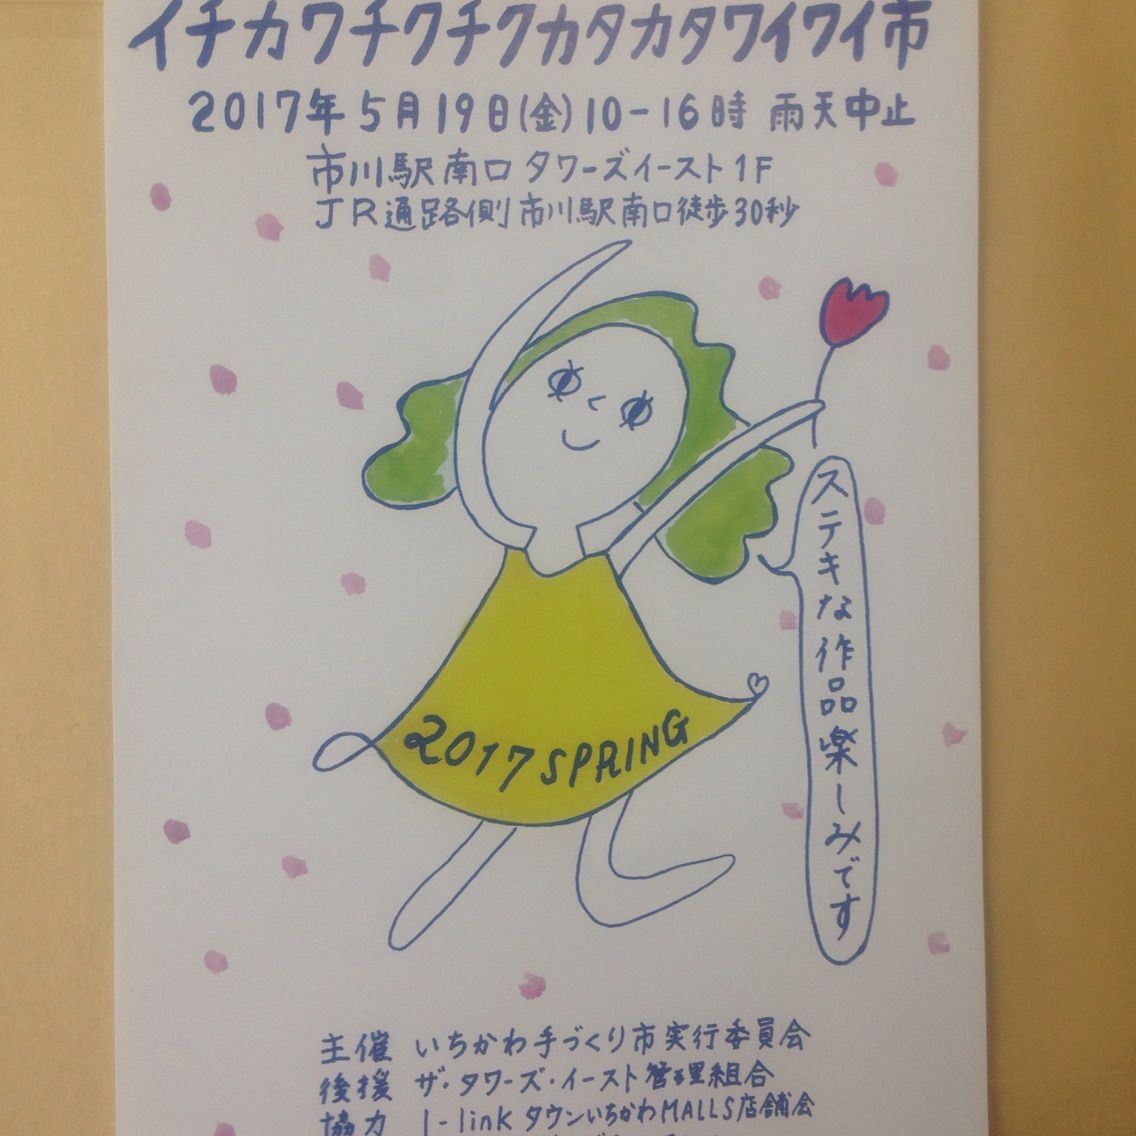 イチカワチクチクカタカタワイワイ市
2017年5月19日(金)10-16時 雨天中止
市川駅南口 タワーズイースト1F
JR通路側 市川駅南口徒歩30秒
ステキな作品楽しみです
2017 SPRING
主催 いちかわ手づくり市実行委員会
後援 ザ・タワーズ・イースト管理組合
協力 I-linkタウンいちかわMALLS店舗会